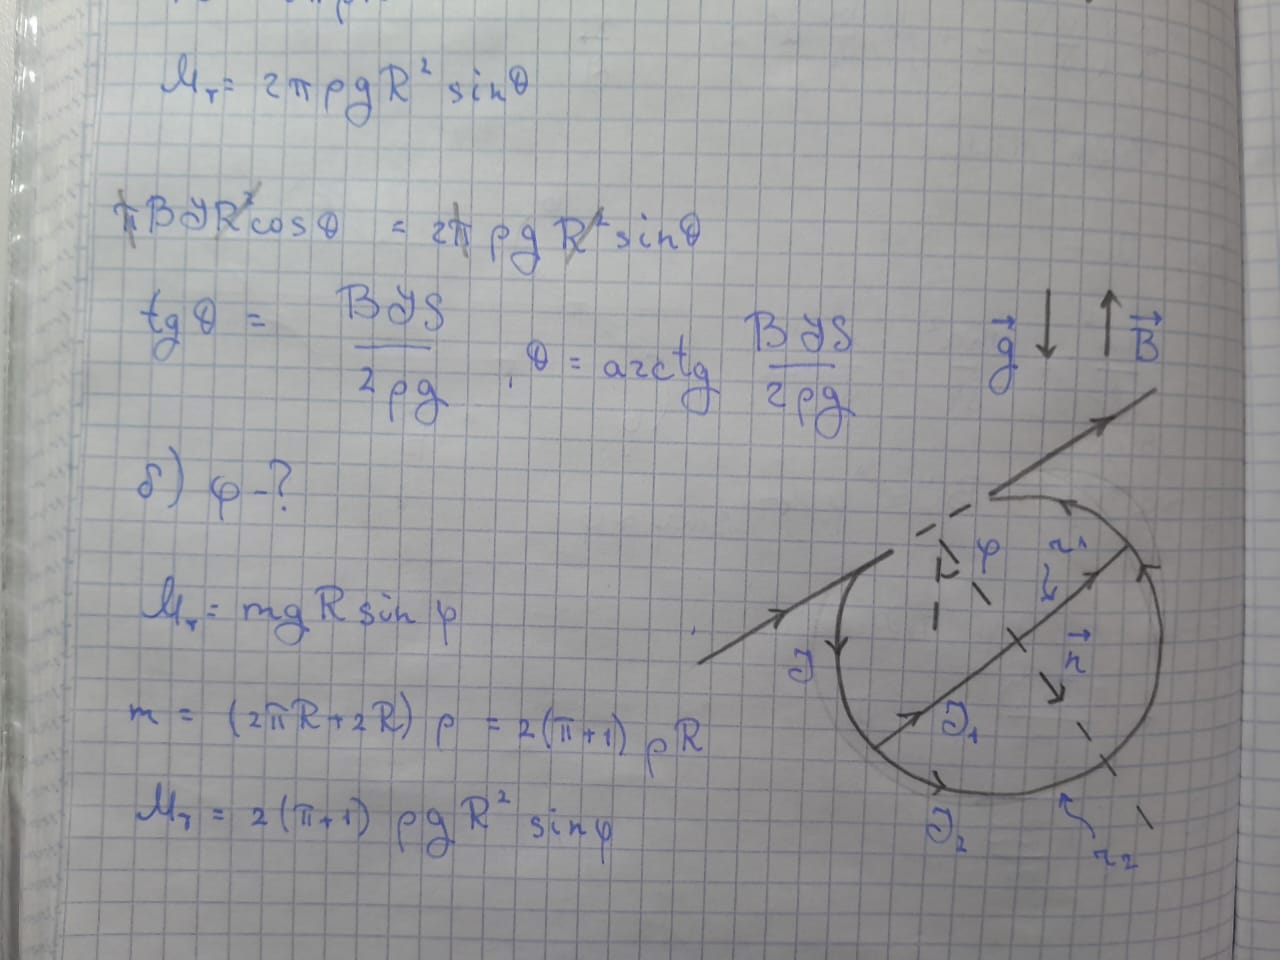 Mт = 2πρgR² sinθ
πBJR²cosθ = 2πρgR² sinθ
tgθ = BJS/2ρg, θ = arctg BJS/2ρg
g B
б) φ-?
φ
r₁
Mт = mgR sinφ
J
n
m = (2πR+2R) ρ = 2(π+1) ρR
J₁
Mт = 2(π+1) ρgR² sinφ
J₂
r₂